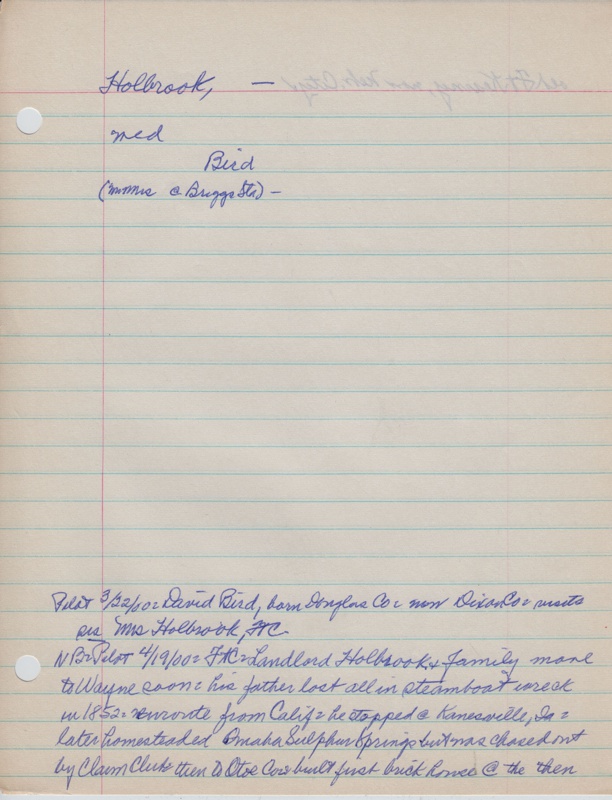 Holbrook, —
med
Bird
(mmrs @ Briggs Sta) —
Pilot 3/22/00 = David Bird, born Douglas Co = now Dixon Co = visits
sis Mrs Holbrook, FtC
NB = Pilot 4/19/00 = FtC = Landlord Holbrook & Family move
to Wayne soon = his father lost all in steamboat wreck
in 1852 = enroute from Calif = he stopped @ Kanesville, Ia =
later homesteaded Omaha Sulphur Springs but was chased out
by Claim Club = then to Otoe Co = built first brick house @ the then